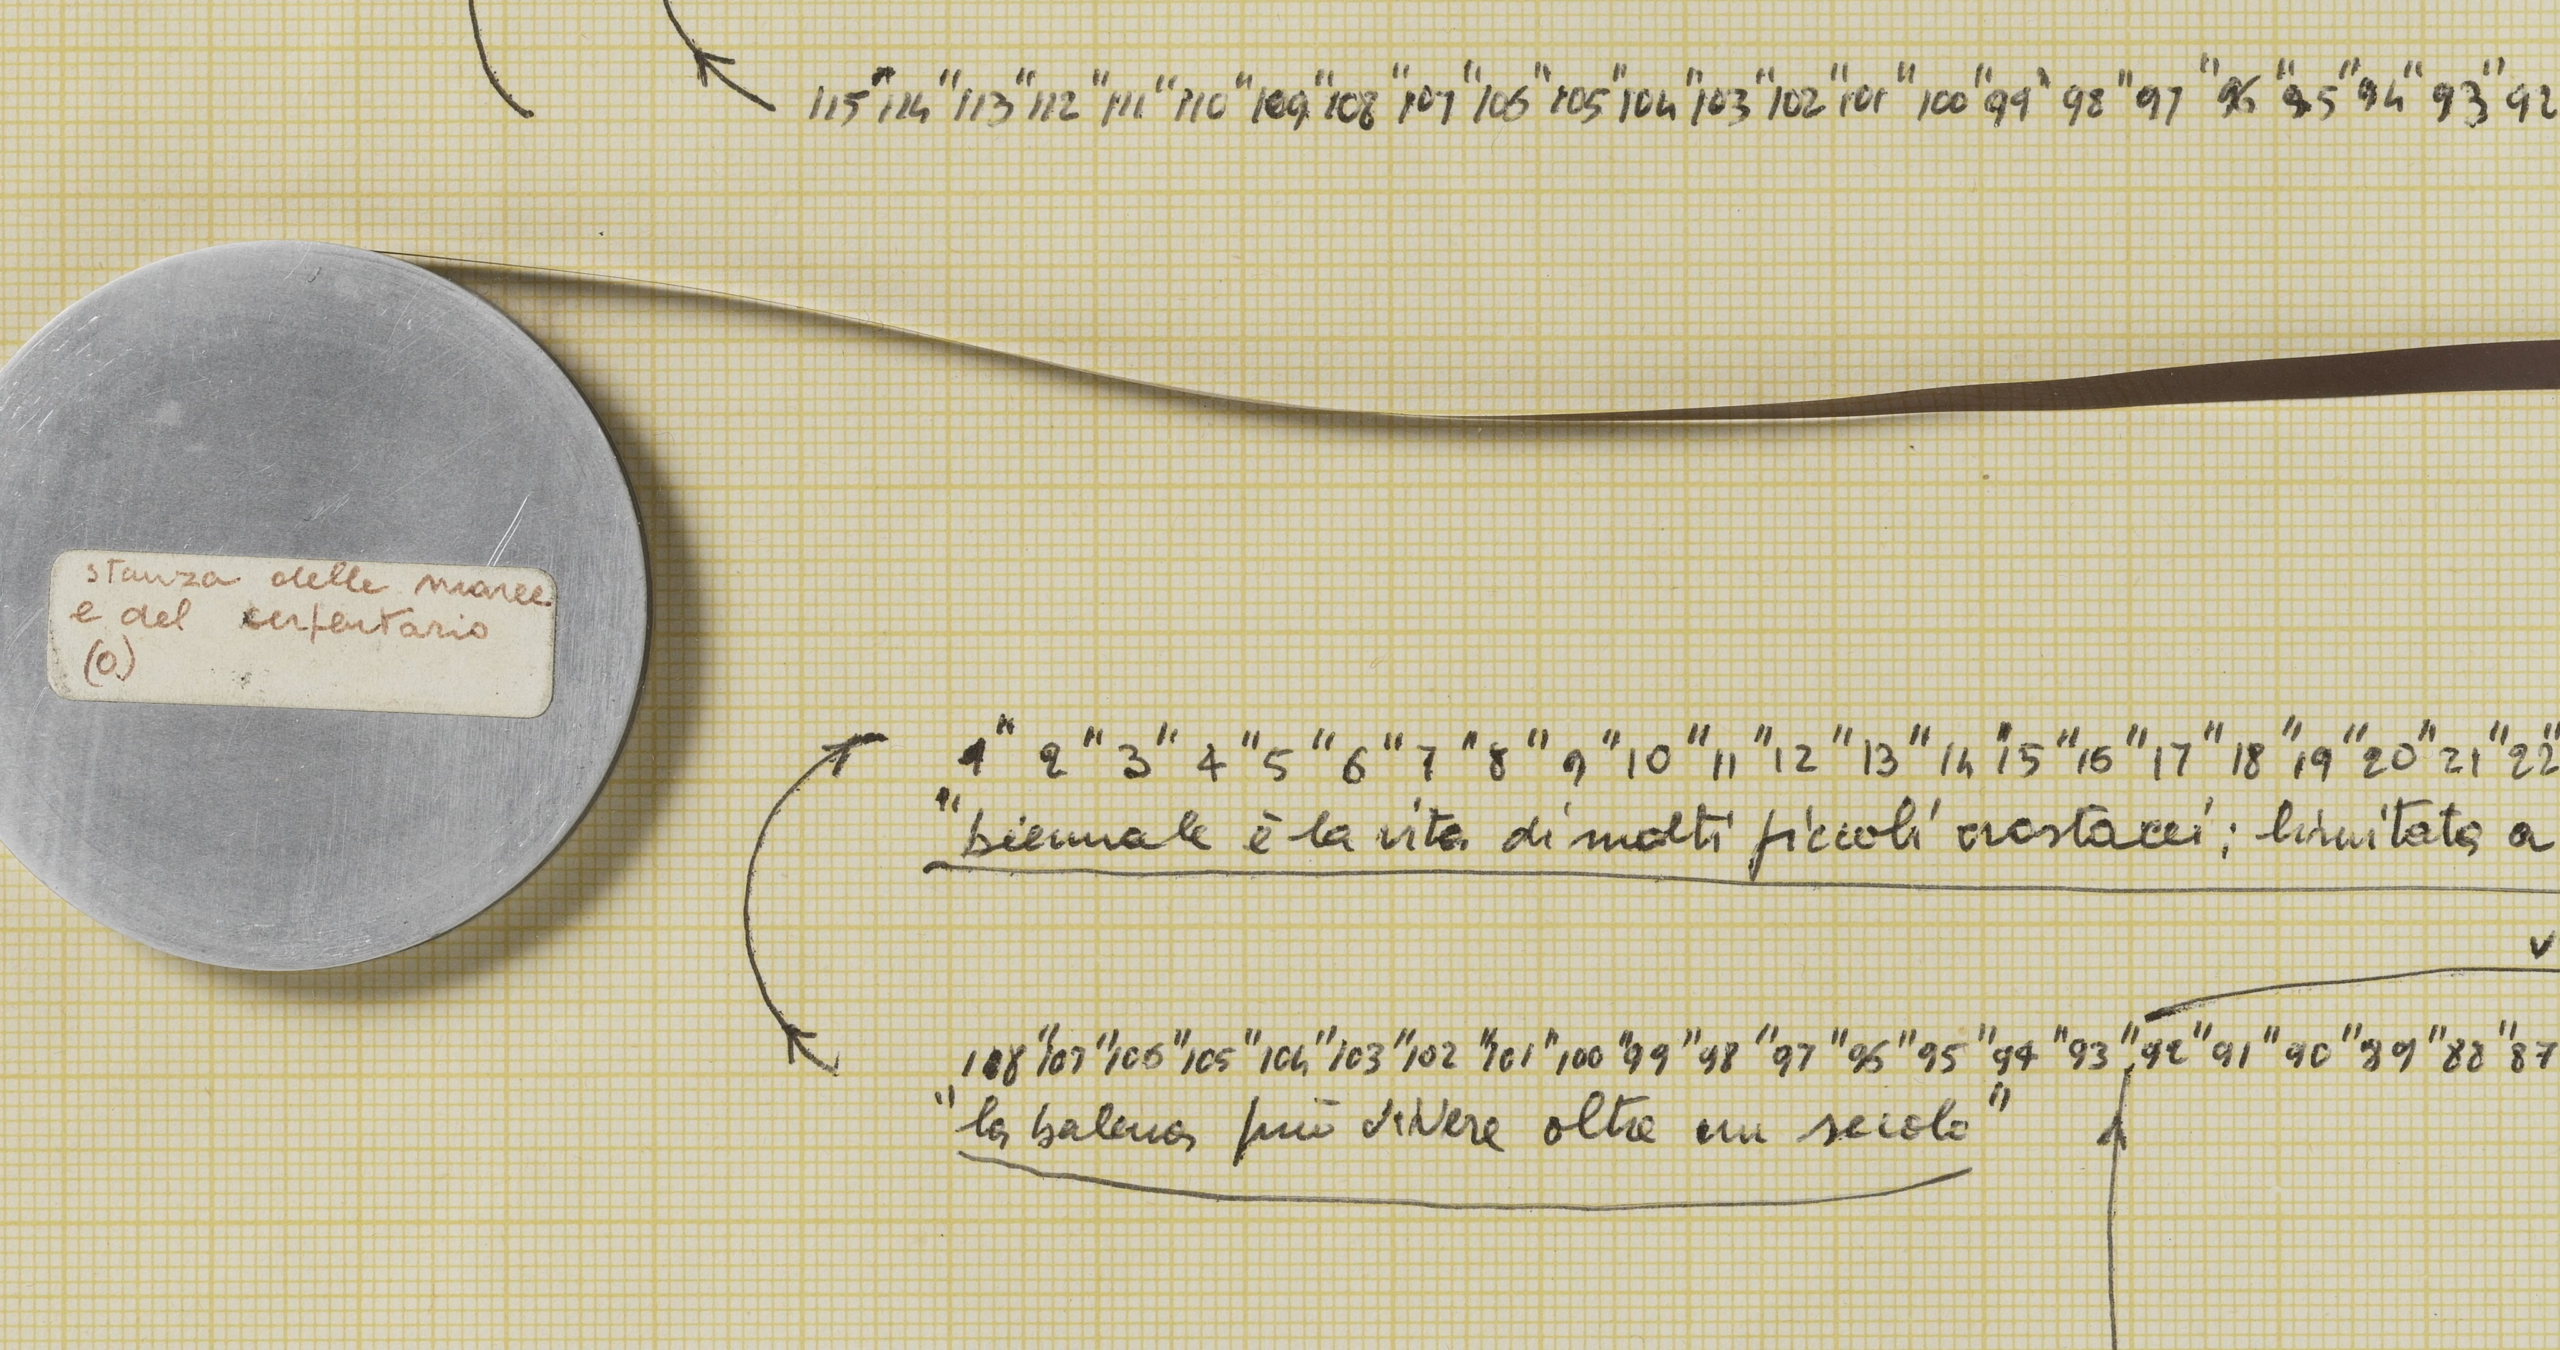 115" 114" 113" 112" 111" 110" 109" 108" 107" 106" 105" 104" 103" 102" 101" 100" 99" 98" 97" 96" 95" 94" 93" 92
stanza delle maree
e del serpentario
(0)
1" 2" 3" 4" 5" 6" 7" 8" 9" 10" 11" 12" 13" 14" 15" 16" 17" 18" 19" 20" 21" 22"
"biennale è la vita di molti piccoli crostacei; limitata a
v
108" 107" 106" 105" 104" 103" 102" 101" 100" 99" 98" 97" 96" 95" 94" 93" 92" 91" 90" 89" 88" 87
"la balena può vivere oltre un secolo"